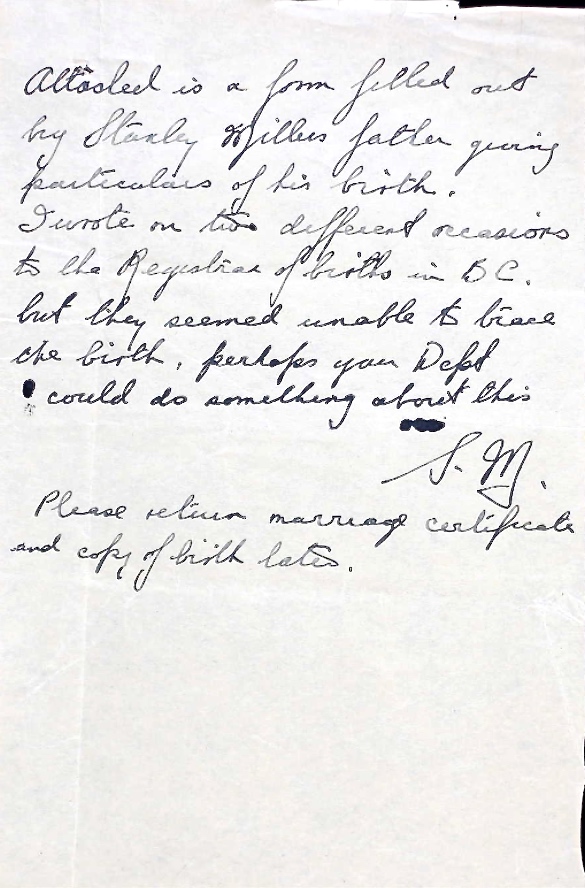 Attached is a form filled out
by Stanley Millers father giving
particulars of his birth.
I wrote on two different occasions
to the Registrar of births in B C.
but they seemed unable to trace
the birth, perhaps your Dept
could do something about this
S. M.
Please return marriage certificate
and copy of birth later.